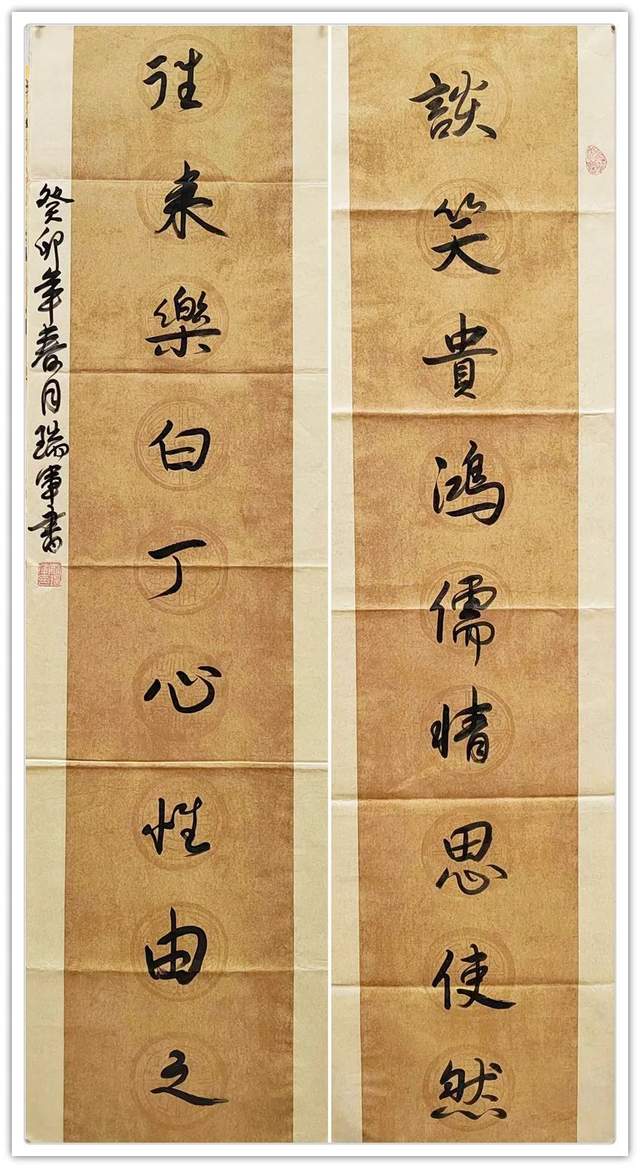 談笑貴鴻儒情思使然
往来樂白丁心性由之
癸卯年春月瑞軍書